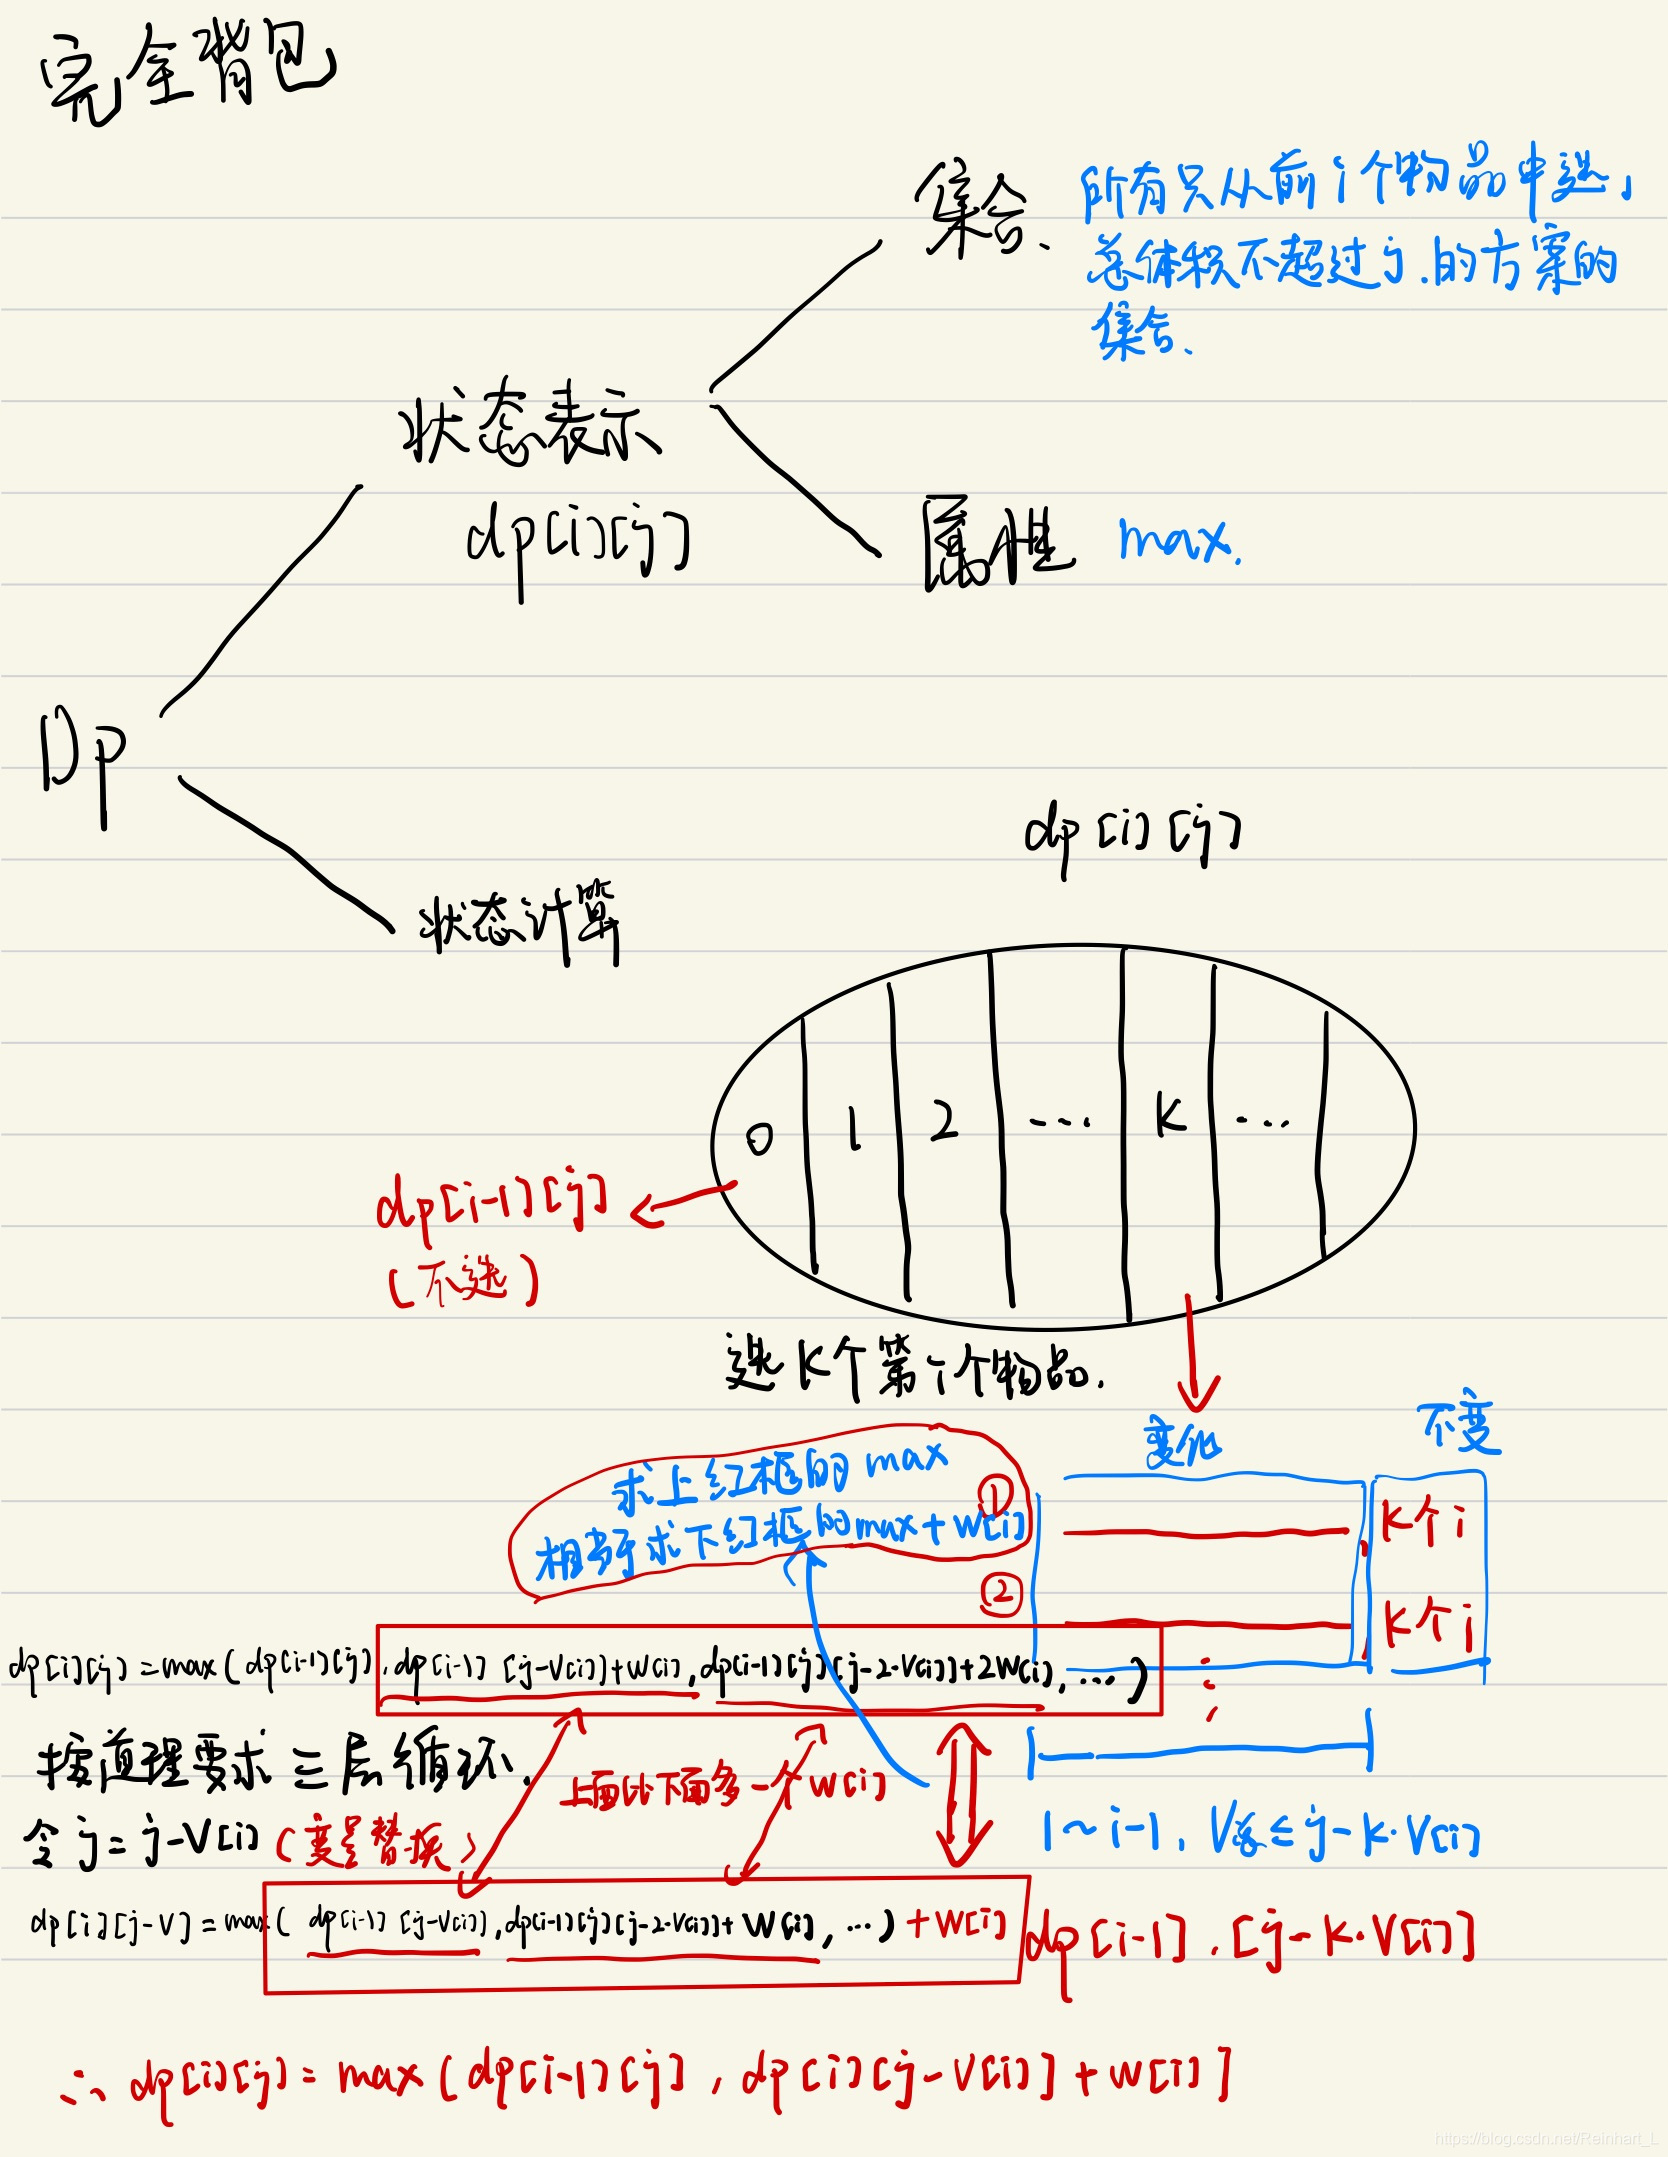 完全背包
集合、所有只从前i个物品中选,
总体积不超过j.的方案的
集合、
状态表示
dp[i][j]
属性 max.
Dp
状态计算
dp[i][j]
0 1 2 ... K ...
dp[i-1][j]
(不选)
选K个第i个物品.
变化 不变
求上红框的max
相当于求下红框的max+w[i]
① K个i
② K个i
dp[i][j]=max(dp[i-1][j],dp[i-1][j-V[i]]+W[i],dp[i-1][j][j-2·V[i]]+2W[i],...)
按道理要求三层循环.
上面比下面多一个W[i]
令j=j-V[i](变量替换)
1~i-1, V总≤j-K·V[i]
dp[i][j-V]=max(dp[i-1][j-V[i]],dp[i-1][j][j-2·V[i]]+W[i],...)+W[i]
dp[i-1].[j-K·V[i]]
∴dp[i][j]=max(dp[i-1][j],dp[i][j-V[i]]+W[i]]
https://blog.csdn.net/Reinhart_L